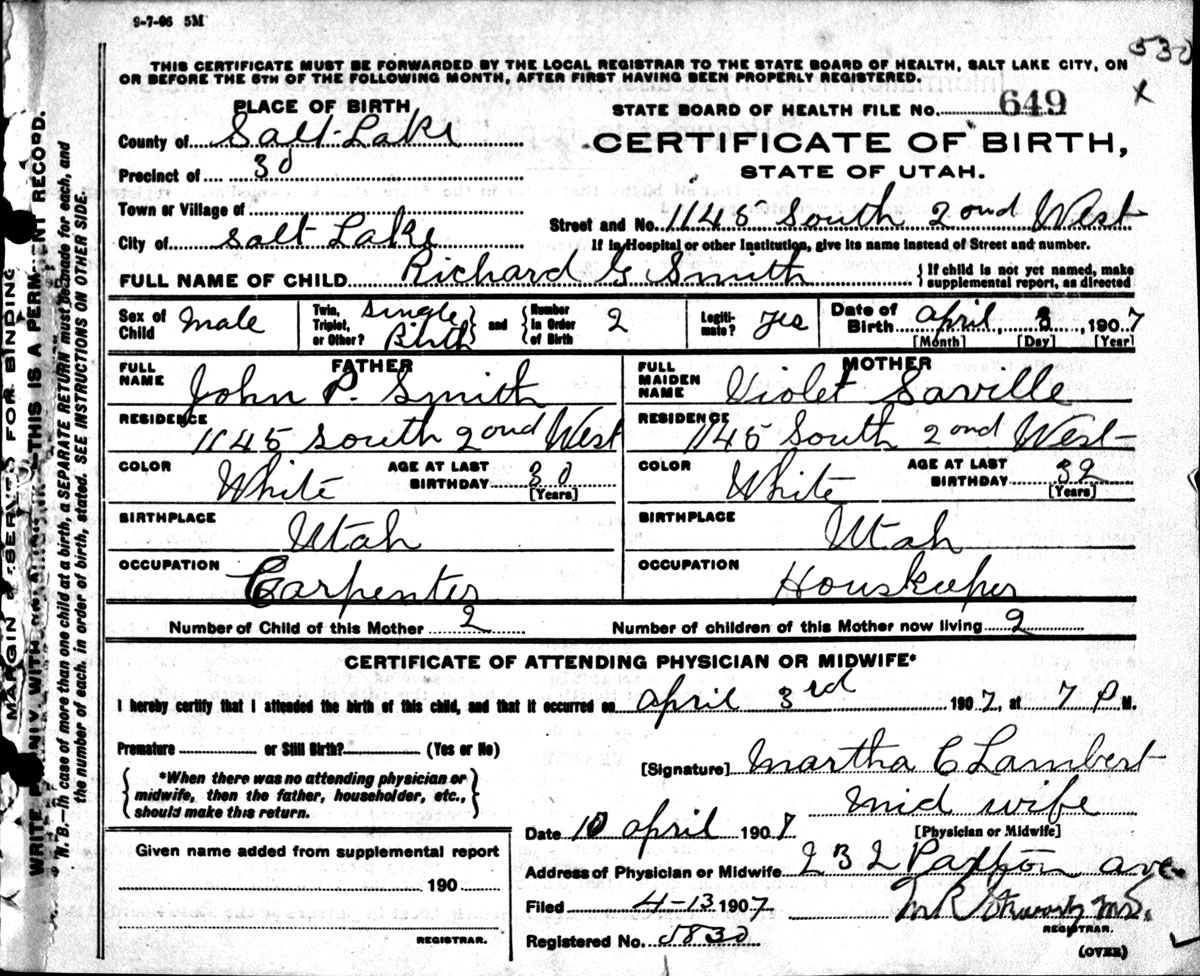 9-7-06 5M
530
THIS CERTIFICATE MUST BE FORWARDED BY THE LOCAL REGISTRAR TO THE STATE BOARD OF HEALTH, SALT LAKE CITY, ON
OR BEFORE THE 5TH OF THE FOLLOWING MONTH, AFTER FIRST HAVING BEEN PROPERLY REGISTERED.
X
PLACE OF BIRTH
STATE BOARD OF HEALTH FILE NO. 649
County of Salt Lake
CERTIFICATE OF BIRTH,
Precinct of 3d
STATE OF UTAH.
Town or Village of
Street and No. 1145 South 2ond West
City of Salt Lake
If in Hospital or other Institution, give its name instead of Street and number.
FULL NAME OF CHILD Richard G Smith
{If child is not yet named, make supplemental report, as directed
Sex of Child Male
Twin, Triplet, or Other? Single Birth} and {Number in Order of Birth 2
Legiti-mate? yes
Date of Birth April 3, 1907
[Month] [Day] [Year]
FATHER
MOTHER
FULL NAME John P. Smith
FULL MAIDEN NAME Violet Saville
RESIDENCE 1145 South 2ond West
RESIDENCE 1145 South 2ond West
COLOR White AGE AT LAST BIRTHDAY 30 [Years]
COLOR White AGE AT LAST BIRTHDAY 32 [Years]
BIRTHPLACE Utah
BIRTHPLACE Utah
OCCUPATION Carpenter
OCCUPATION Houskeeper
Number of Child of this Mother 2
Number of children of this Mother now living 2
CERTIFICATE OF ATTENDING PHYSICIAN OR MIDWIFE*
I hereby certify that I attended the birth of this child, and that it occurred on April 3rd 1907, at 7 P M.
Premature or Still Birth? (Yes or No)
[Signature] Martha C Lambert
{*When there was no attending physician or
midwife, then the father, householder, etc.,
should make this return.}
Mid wife
[Physician or Midwife]
Date 10 April 1907
Given name added from supplemental report
Address of Physician or Midwife 232 Paxton ave.
190
Filed 4-13 1907
M.D.
REGISTRAR.
REGISTRAR.
Registered No. 5830
(OVER)
MARGIN RESERVED FOR BINDING
THIS IS A PERMANENT RECORD.
* N. B.—In case of more than one child at a birth, a SEPARATE RETURN must be made for each, and
the number of each, in order of birth, stated. SEE INSTRUCTIONS ON OTHER SIDE.